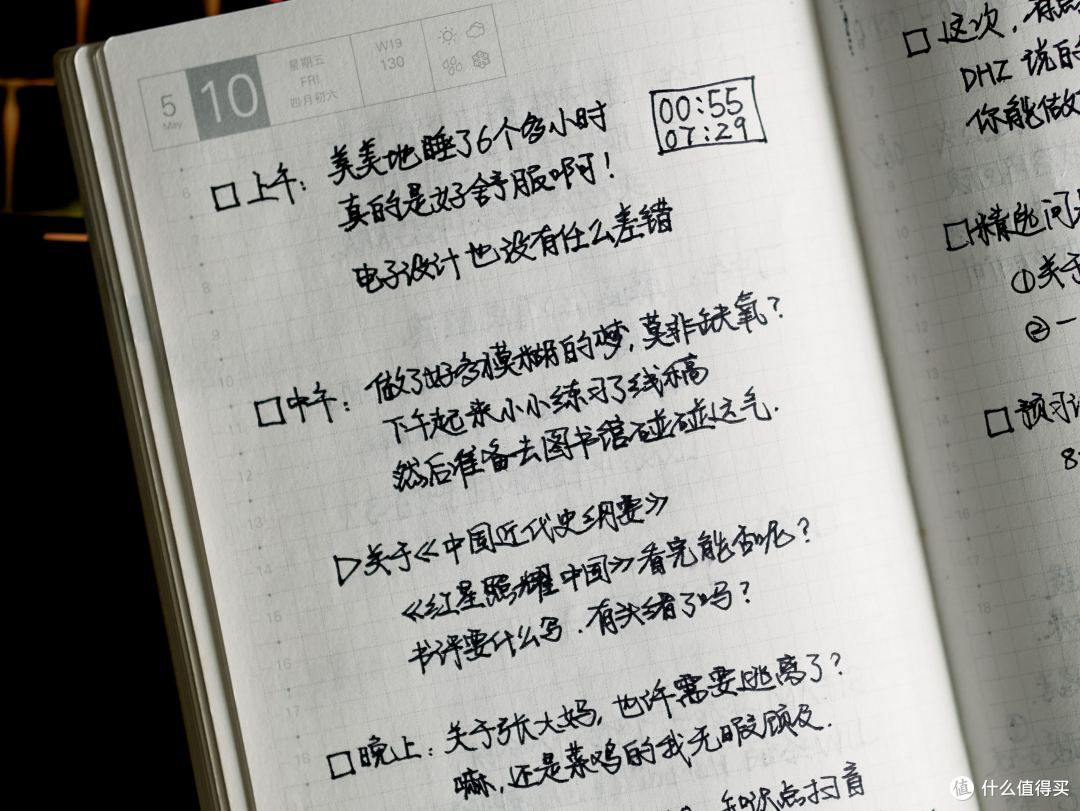 5
May
10
星期五
FRI
四月初六
W19
130
00:55
07:29
□上午：美美地睡了6个多小时
真的是好舒服啊！
电子设计也没有任么差错
□中午：做了好多模糊的梦，莫非缺氧？
下午起来小小练习了线稿
然后准备去图书馆碰碰运气.
▷关于《中国近代史纲要》
《红星照耀中国》看完能否呢？
书评要什么写.有头绪了吗？
□晚上：关于张大妈，也许需要逃离了？
嘛，还是菜鸡的我无暇顾及.
知识点扫盲
□这次，有点
DHZ 说的
你能做好
□精选问
①关于
②一
□预习
8
值 什么值得买